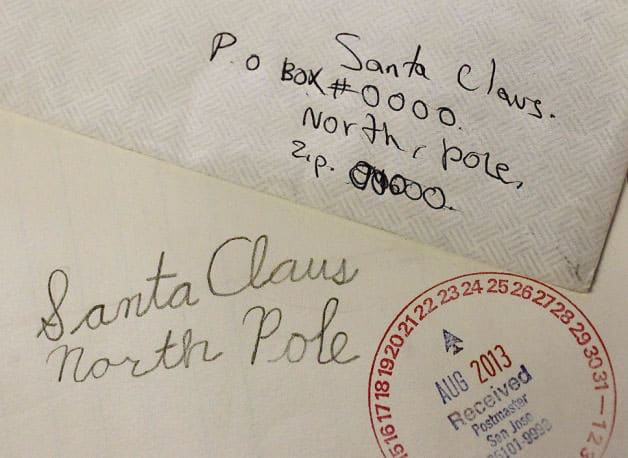 Santa Claus.
P.O BOX #0000.
North, pole,
Zip. 00000.
Santa Claus
North Pole
15 16 17 18 19 20 21 22 23 24 25 26 27 28 29 30 31 — 1 2 3
AUG 2013
Received
Postmaster
San Jose
95101-9998